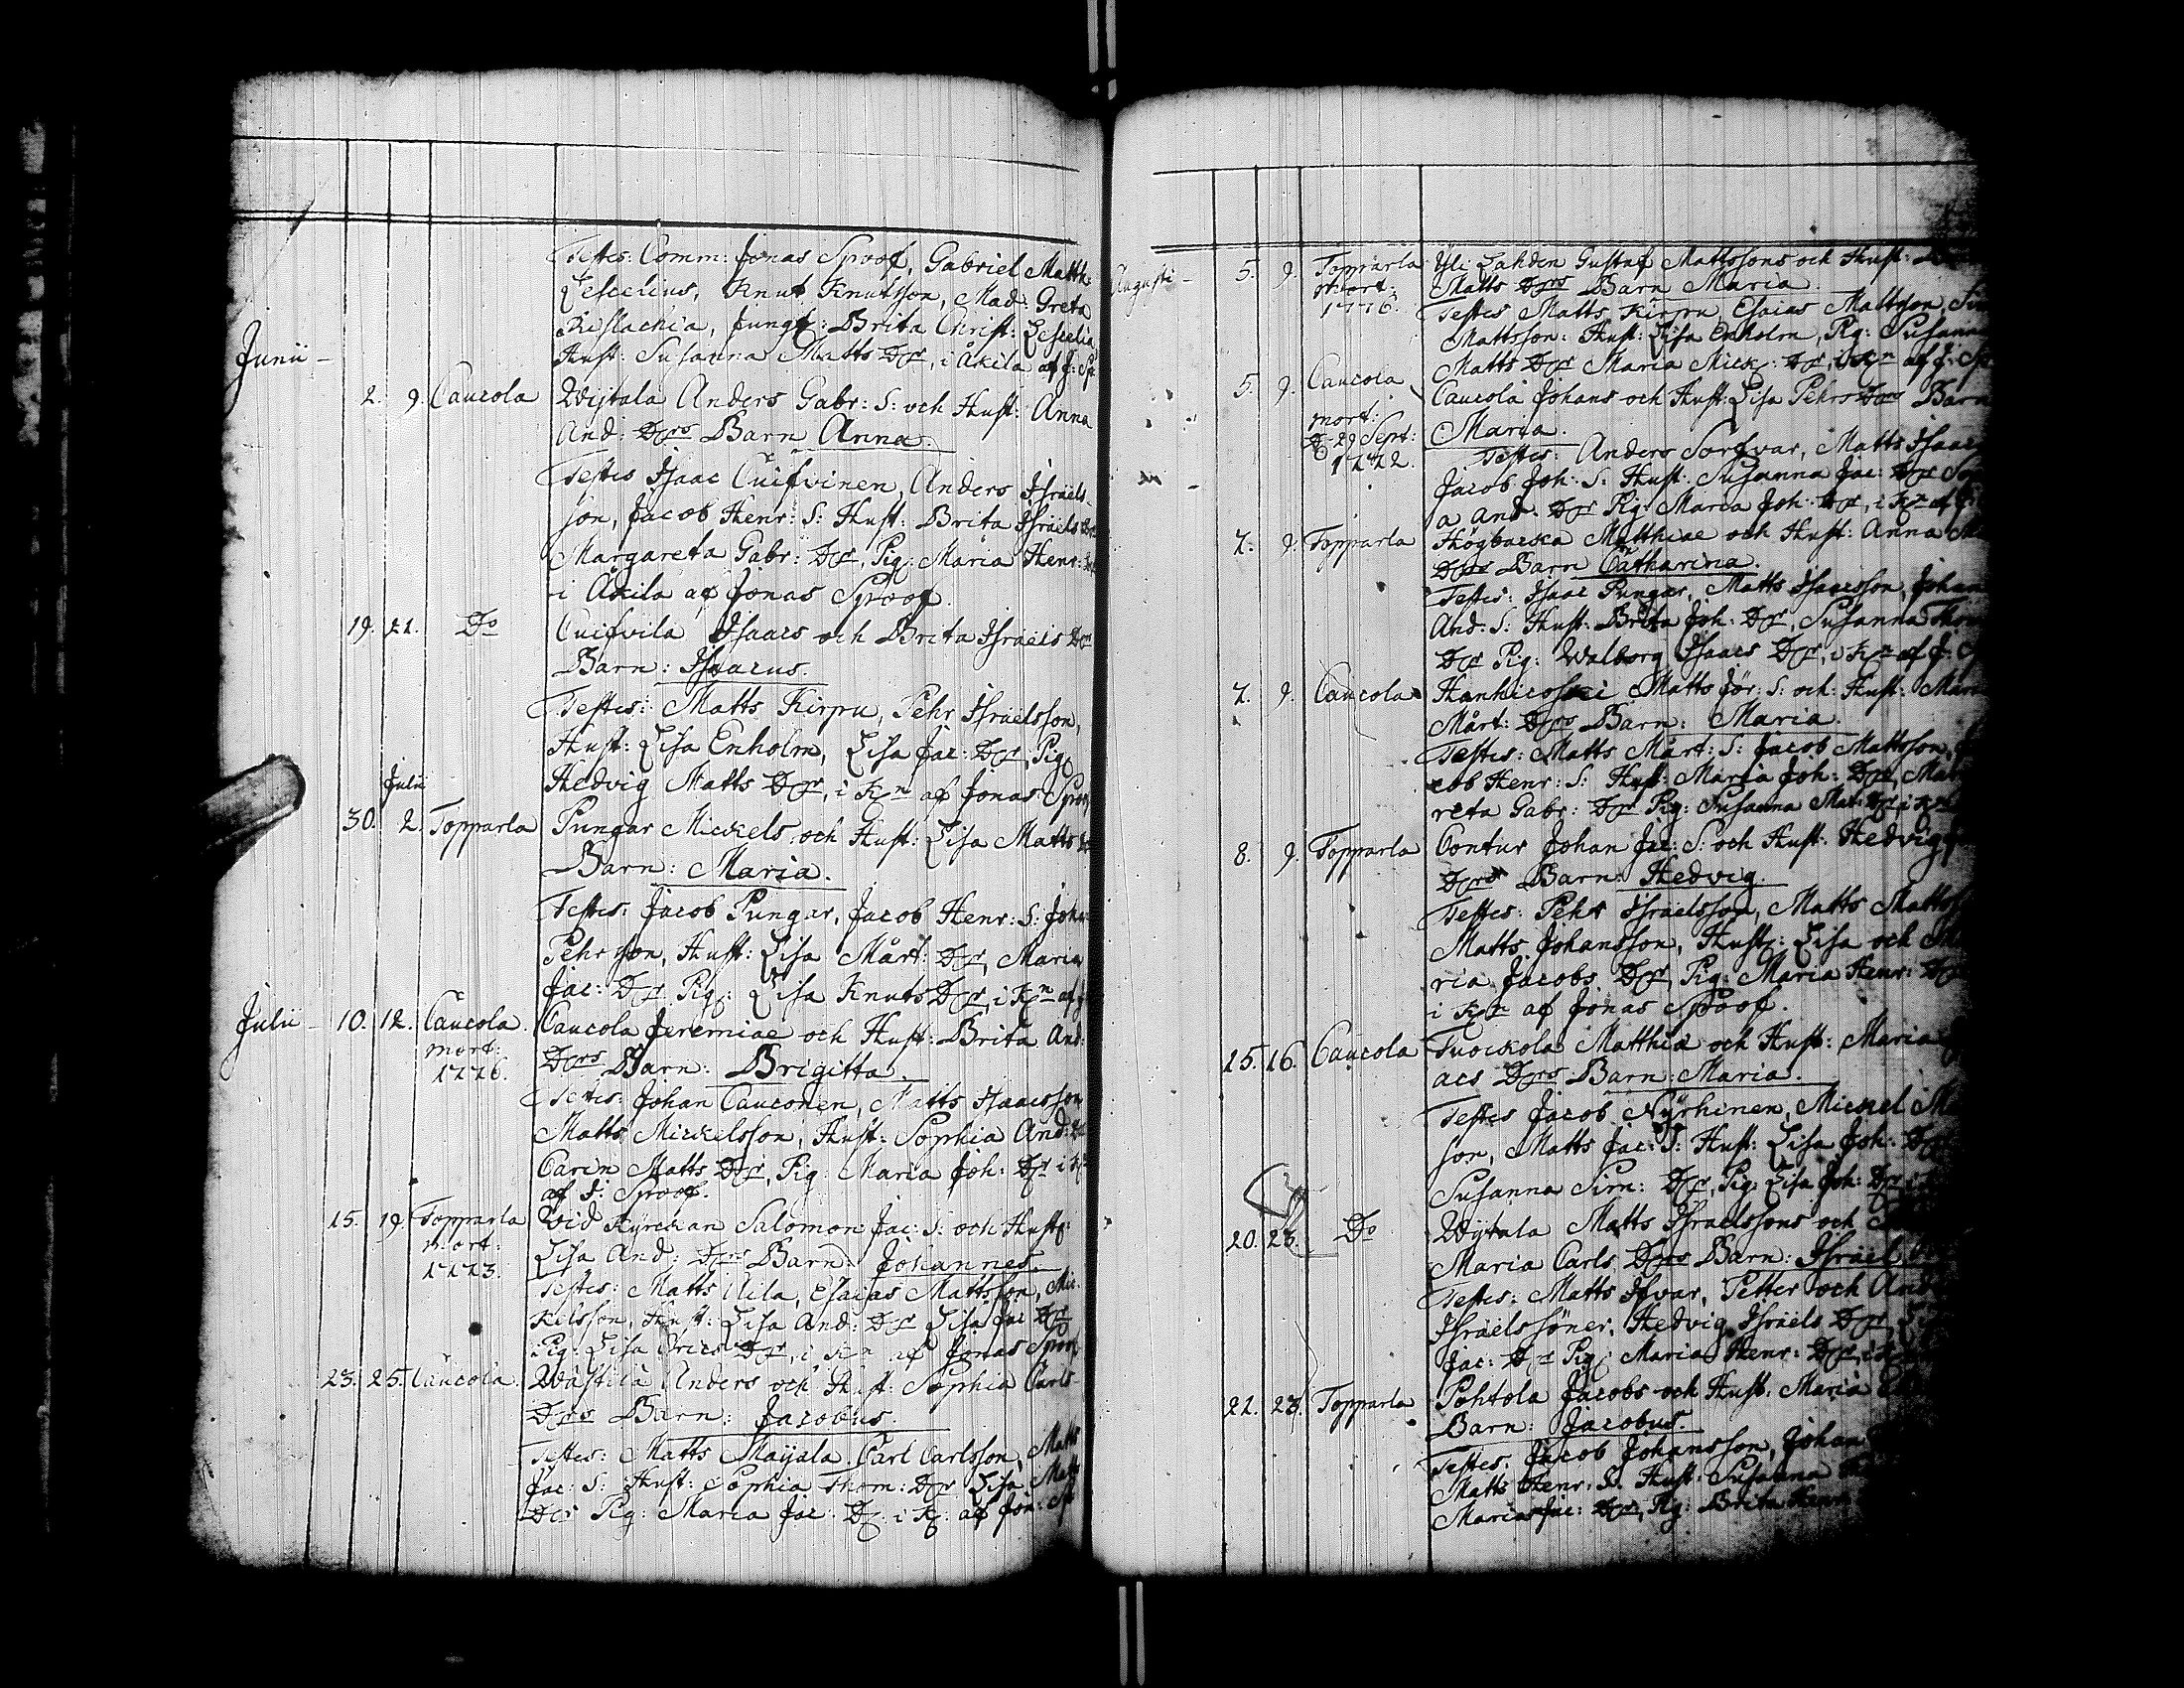 Testes: Comm: Jonas Sproof, Gabriel Matth:
Lescelius, Knut Knutsson, Mad: Greta
Jungf: Brita Christ: Lescelia
Hust: Susanna Matts Dr, i Åkila af J: Sp
Junii
2. 9. Caucola Wijtala Anders Gabr: S: och Hust: Anna
And: Drs Barn Anna.
Testes Isaac Cuifvinen, Anders Israels
son, Jacob Henr: S: Hust: Brita Israels
Margareta Gabr: Dr, Pig: Maria Henr:
i Åkila af Jonas Sproof.
19. 21. Do Cuifvila Isaacs och Brita Israels Drs
Barn: Isaacus.
Testes: Matts Kirpu, Pehr Israelsson,
Hust: Lisa Enholm, Lisa Jac: Dr, Pig
Hedvig Matts Dr, i Kn af Jonas Sproof
Julii
30. 2. Topparla Pungar Mickels och Hust: Lisa Matts
Barn: Maria.
Testes: Jacob Pungar, Jacob Henr: S: Johan
Pehrsson, Hust: Lisa Mårt: Dr, Maria
Jac: Dr Pig: Lisa Knuts Dr, i Kn af J
Julii 10. 12. Caucola Caucola Jeremiae och Hust: Brita And:
mort: 1776. Drs Barn: Brigitta.
Testes: Johan Cauconen, Matts Isaacsson
Matts Mickelsson, Hust: Sophia And:
Carin Matts Dr, Pig: Maria Joh: Dr i Kn
af J: Sproof.
15. 19. Topparla Wid Kyrckan Salomon Jac: S: och Hust:
mort: 1773. Lisa And: Drs Barn: Johannes.
Testes: Matts Uila, Esaias Mattsson, Mic
kelsson, Hust: Lisa And: Dr Lisa Jac Dr
Pig: Lisa Erics Dr, i Kn af Jonas Sproof
23. 25. Caucola. Wästilä Anders och Hust: Sophia Carls
Drs Barn: Jacobus.
Testes: Matts Maijala, Carl Carlsson, Matts
Jac: S: Hust: Sophia Thom: Dr Lisa Matts
Dr Pig: Maria Jac: D: i K: af Jon: Sp
Augusti 5. 9. Topparla Yli Lahden Gustaf Mattssons och Hust:
mort: 1776. Matts Drs Barn Maria.
Testes Matts Kirpu, Esaias Mattsson, Sim
Mattsson: Hust: Lisa Enholm, Pig: Susanna
Matts Dr Maria Mick: Dr, i Kn af J: Sp
5. 9. Caucola Caucola Johans och Hust: Lisa Pehrs Drs Barn
mort: D 29 Sept: 1772. Maria.
Testes: Anders Sorfvar, Matts Isaac
Jacob Joh: S: Hust: Susanna Jac: Dr Soph
a And: Dr Pig: Maria Joh: Dr, i Kn af
7. 9. Topparla Högbacka Matthiae och Hust: Anna
Drs Barn Catharina.
Testes: Isaac Pungar, Matts Isaacsson, Johan
And: S: Hust: Brita Joh: Dr, Susanna Thom
Dr Pig: Walborg Isaacs Dr, i Kn af J:
7. 9. Caucola Matts Jör: S: och Hust: Mar
Mårt: Drs Barn: Maria.
Testes: Matts Mårt: S: Jacob Mattsson, Ja
cob Henr: S: Hust: Maria Joh: Dr, Mar
reta Gabr: Dr Pig: Susanna Mat: Dr i Kn
8. 9. Topparla Contur Johan Jac: S: och Hust: Hedvig
Drs Barn: Hedvig.
Testes: Pehr Israelsson, Matts Matts
Matts Johansson, Hust: Lisa och Ma
ria Jacobs Dr, Pig: Maria Henr: Dr
i Kn af Jonas Sproof.
15. 16. Caucola Tuockola Matthia och Hust: Maria
acs Drs Barn: Maria.
Testes Jacob Nyrhinen, Mickel Ma
son, Matts Jac: S: Hust: Lisa Joh: Dr
Susanna Sim: Dr, Pig: Lisa Joh: Dr i
20. 23. Do Wijtala Matts Israelssons och
Maria Carls Drs Barn: Israel
Testes: Matts Ifvar, Petter och And
Israelssöner, Hedvig Israels Dr,
Jac: Dr Pig: Maria Henr: Dr, i
22. 23. Topparla Pohtola Jacobs och Hust: Maria
Barn: Jacobus.
Testes: Jacob Johansson, Johan
Matts Henr: S: Hust: Susanna
Maria Jac: Dr, Pig: Brita Henr